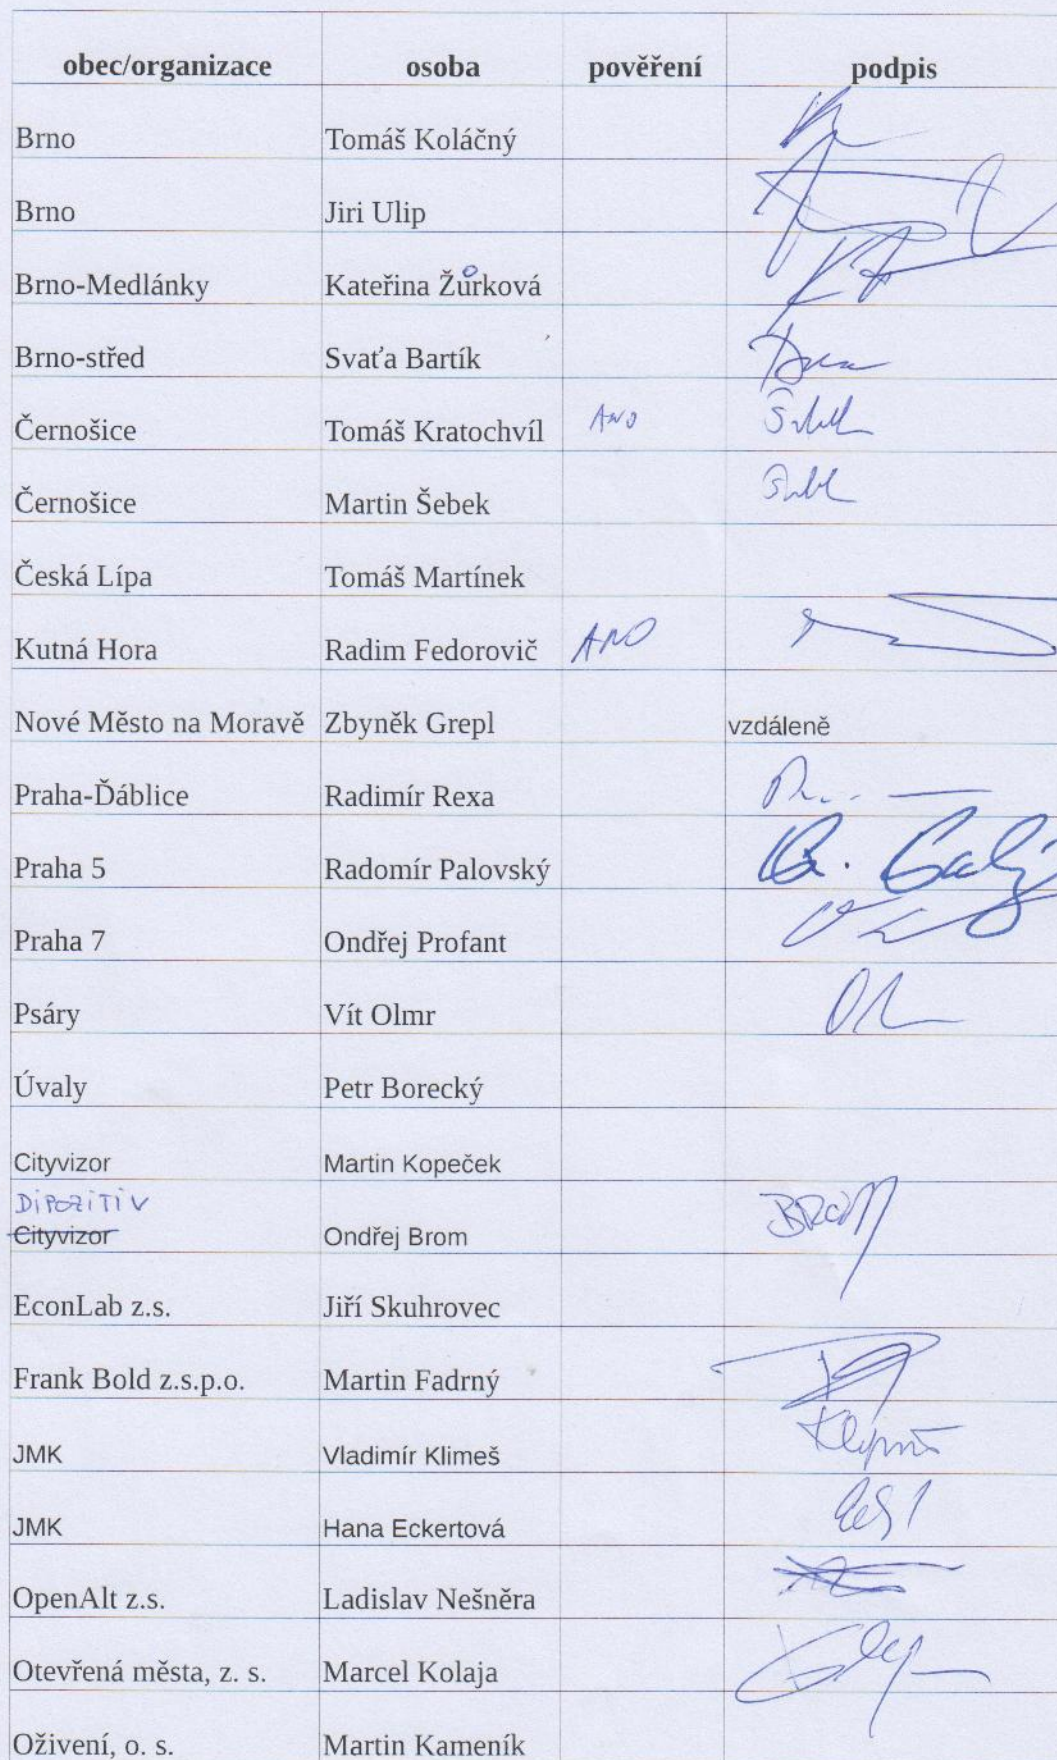 obec/organizace osoba pověření podpis
Brno Tomáš Koláčný
Brno Jiri Ulip
Brno-Medlánky Kateřina Žůrková
Brno-střed Svaťa Bartík
Černošice Tomáš Kratochvíl ANO
Černošice Martin Šebek
Česká Lípa Tomáš Martínek
Kutná Hora Radim Fedorovič ANO
Nové Město na Moravě Zbyněk Grepl vzdáleně
Praha-Ďáblice Radimír Rexa
Praha 5 Radomír Palovský
Praha 7 Ondřej Profant
Psáry Vít Olmr
Úvaly Petr Borecký
Cityvizor Martin Kopeček
DiPOZiTiV
Cityvizor Ondřej Brom BROM
EconLab z.s. Jiří Skuhrovec
Frank Bold z.s.p.o. Martin Fadrný
JMK Vladimír Klimeš
JMK Hana Eckertová
OpenAlt z.s. Ladislav Nešněra
Otevřená města, z. s. Marcel Kolaja
Oživení, o. s. Martin Kameník